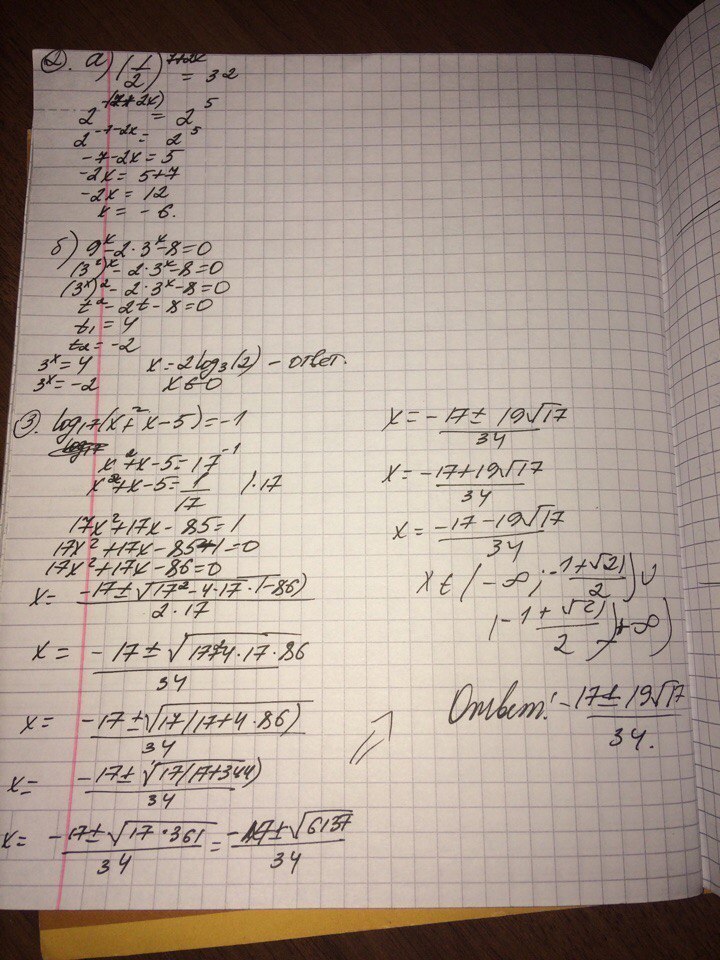 2. а) (1/2)^(7+2x) = 32
2^-(7+2x) = 2^5
2^(-7-2x) = 2^5
-7-2x = 5
-2x = 5+7
-2x = 12
x = -6.
б) 9^x - 2·3^x - 8 = 0
(3²)^x - 2·3^x - 8 = 0
(3^x)² - 2·3^x - 8 = 0
t² - 2t - 8 = 0
t₁ = 4
t₂ = -2
3^x = 4 x = 2log₃(2) - ответ.
3^x = -2
3. log₁₇(x²+x-5) = -1
x²+x-5 = 17^-1
x²+x-5 = 1/17 |·17
17x²+17x-85 = 1
17x²+17x-85-1 = 0
17x²+17x-86 = 0
x = (-17±√(17²-4·17·(-86)))/(2·17)
x = (-17±√(17²+4·17·86))/34
x = (-17±√(17(17+4·86)))/34
x = (-17±√(17(17+344)))/34
x = (-17±√(17·361))/34 = (-17±√6137)/34
x = (-17±19√17)/34
x = (-17+19√17)/34
x = (-17-19√17)/34
x ∈ (-∞; -(1+√21)/2) ∪
(-(1+√21)/2; +∞)
Ответ: (-17±19√17)/34.